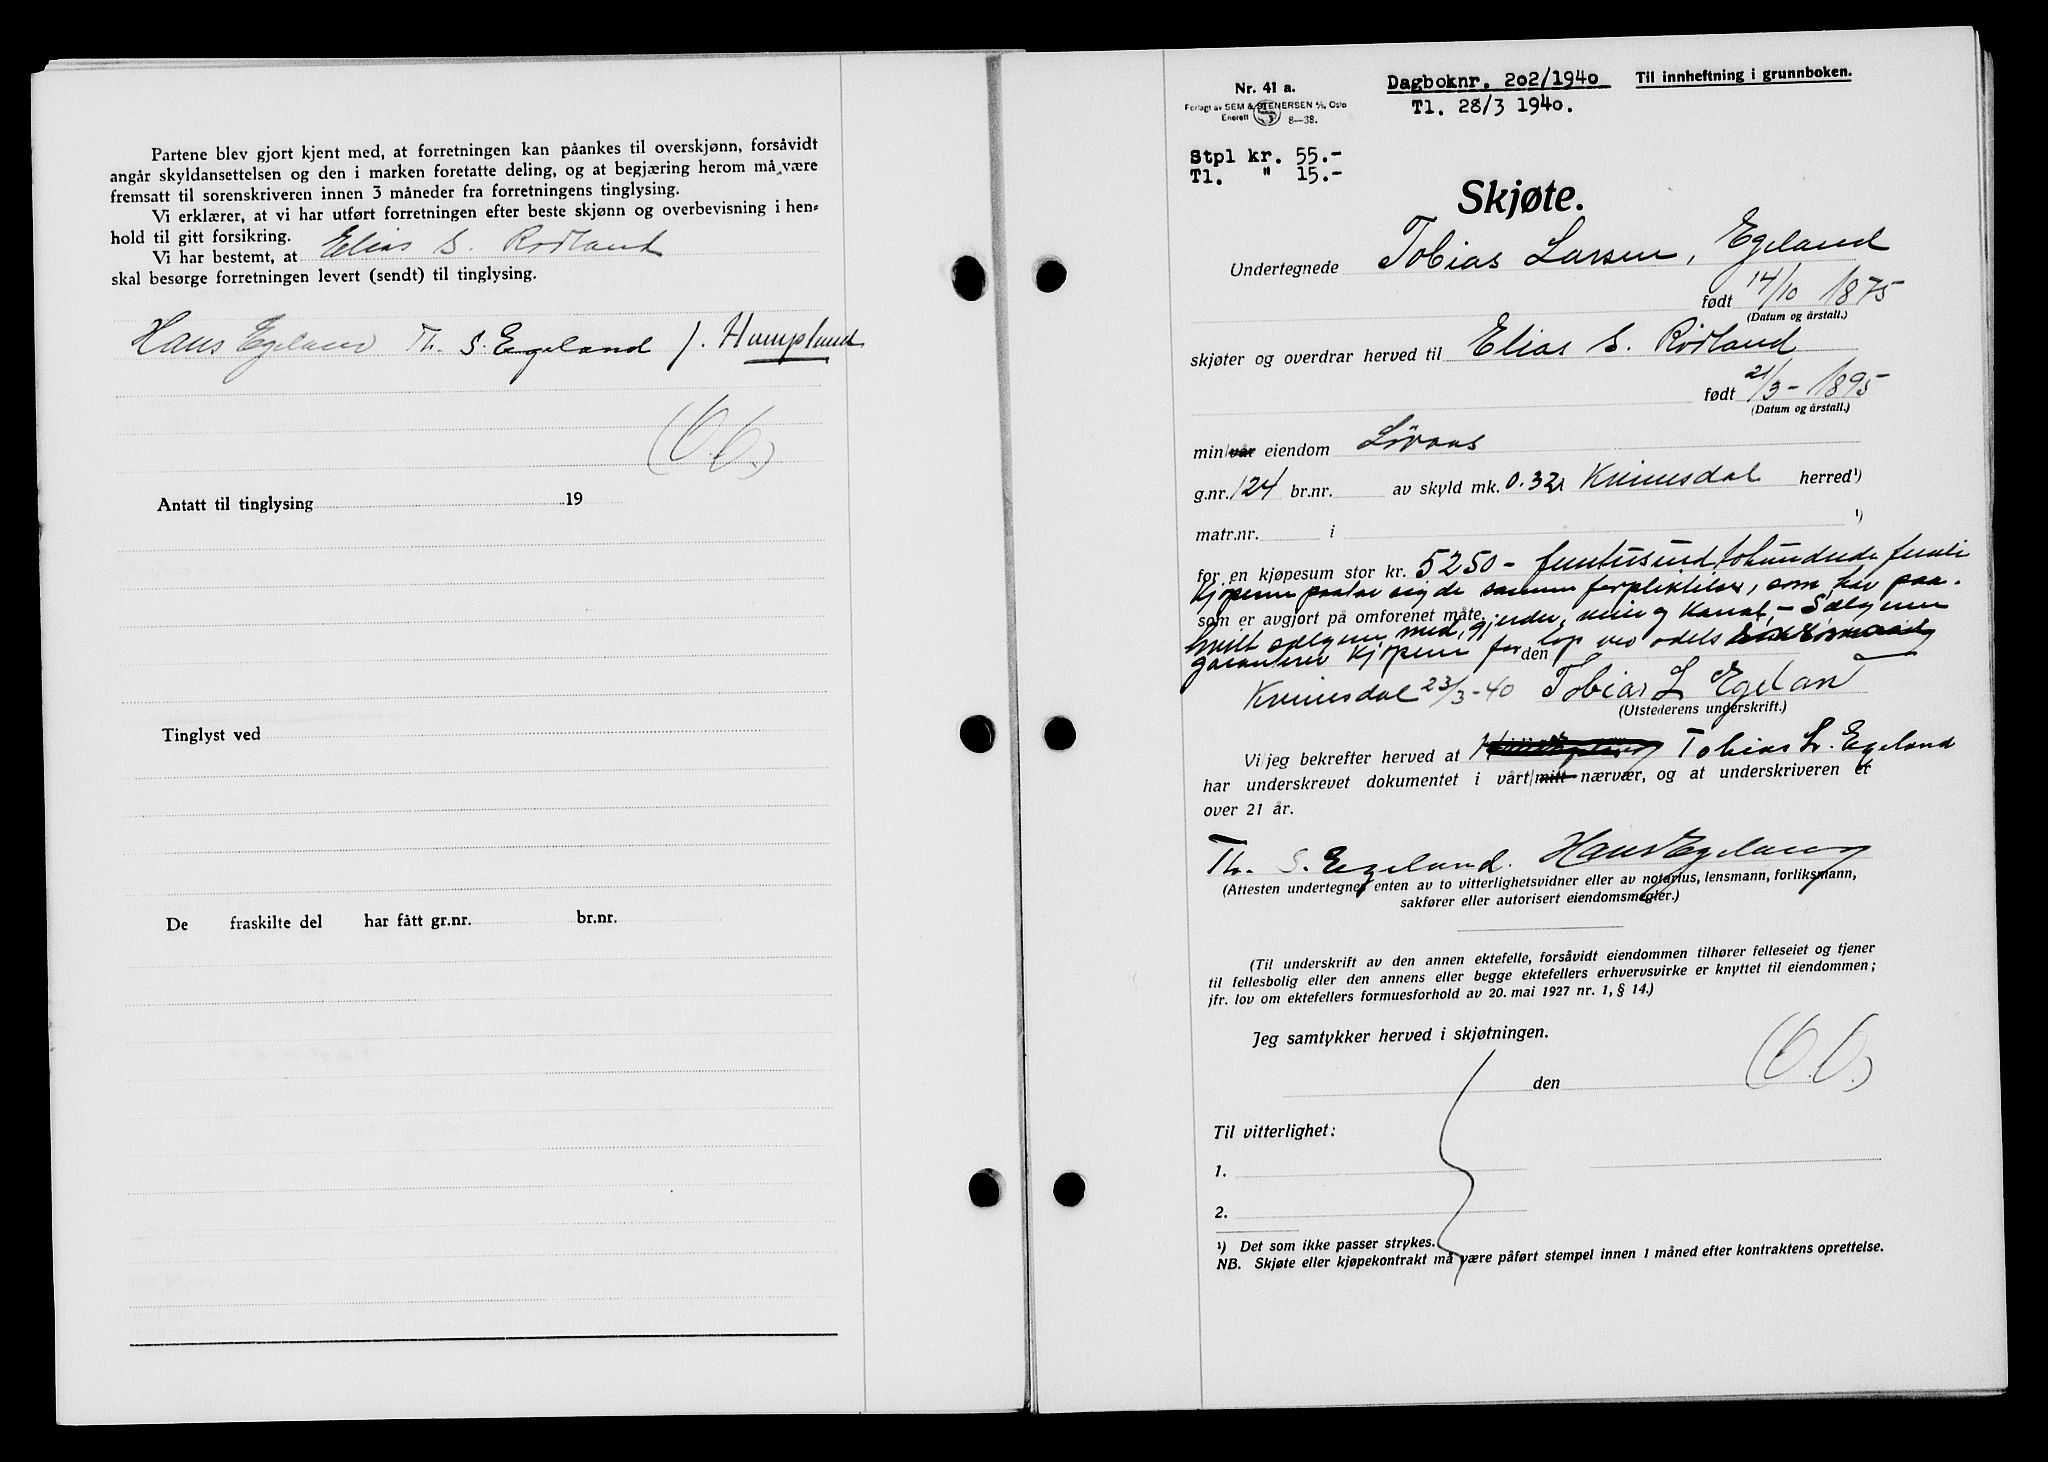 Partene blev gjort kjent med, at forretningen kan påankes til overskjønn, forsåvidt
angår skyldansettelsen og den i marken foretatte deling, og at begjæring herom må være
fremsatt til sorenskriveren innen 3 måneder fra forretningens tinglysing.
Vi erklærer, at vi har utført forretningen efter beste skjønn og overbevisning i hen-
hold til gitt forsikring.
Vi har bestemt, at Elias S. Rødland
skal besørge forretningen levert (sendt) til tinglysing.
Hans Egeland Th. S. Egeland J. Humpland
Antatt til tinglysing 19
Tinglyst ved
De fraskilte del har fått gr.nr. br.nr.
Nr. 41 a.
Forlagt av SEM & STENERSEN A/S, Oslo
Enerett S 8—38.
Dagboknr. 202/1940 Til innheftning i grunnboken.
Tl. 28/3 1940.
Stpl kr. 55.-
Tl. " 15.-
Skjøte.
Undertegnede Tobias Larsen, Egeland
født 14/10 1875
(Datum og årstall.)
skjøter og overdrar herved til Elias S. Rødland
født 21/3 - 1895
(Datum og årstall.)
min/vår eiendom Løvaas
g.nr. 124 br.nr. av skyld mk. 0.32 i Kvinesdal herred¹)
matr.nr. i ¹)
for en kjøpesum stor kr. 5250 - femtusind tohundrede femti
Kjøperen paatar sig de samme forpliktelser, som har paa-
som er avgjort på omforenet måte.
hvilt sælgeren med, gjerder, veie og kanal, - Sælgeren
garanterer kjøperen for løp ved odels
den
Kvinesdal 23/3-40 Tobias L Egelan
(Utstederens underskrift.)
Vi/jeg bekrefter herved at Tobias L. Egeland
har underskrevet dokumentet i vårt/mitt nærvær, og at underskriveren er
over 21 år.
Th. S. Egeland. Hans Egeland
(Attesten undertegnes enten av to vitterlighetsvidner eller av notarius, lensmann, forliksmann,
sakfører eller autorisert eiendomsmegler.)
(Til underskrift av den annen ektefelle, forsåvidt eiendommen tilhører felleseiet og tjener
til fellesbolig eller den annens eller begge ektefellers erhvervsvirke er knyttet til eiendommen;
jfr. lov om ektefellers formuesforhold av 20. mai 1927 nr. 1, § 14.)
Jeg samtykker herved i skjøtningen.
den
Til vitterlighet:
1.
2.
¹) Det som ikke passer strykes.
NB. Skjøte eller kjøpekontrakt må være påført stempel innen 1 måned efter kontraktens oprettelse.